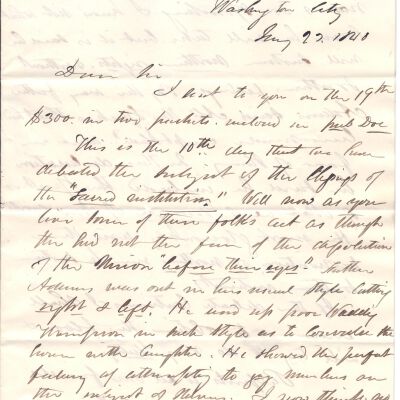 Washington City
Jany 22. 1840
Dear Sir
I sent to you on the 19th
$300. in two packets. inclosed in pub Doc
This is the 10th day that we have
debated the subject of the
the "Sacred institution." Well now as you
love some of these folks act as though
the had not the fear of the dissolution
of the Union "before their eyes". Father
Adams was out in his usual style cutting
right & left. He used up poor Waddy
Thompson in such style as to convulse the
house with laughter. He showed the perfect
of attempting to gag members on
the of I now think